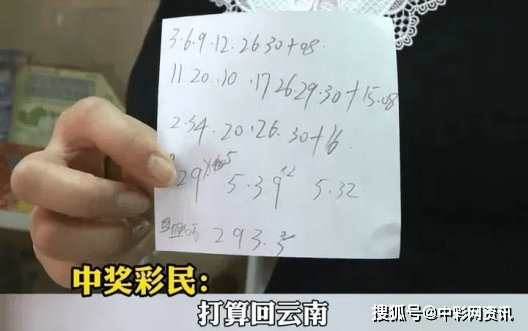 3.6.9.12.26.30+08
11.20..10.17.26.29.30+15.08
2.34.20.26.30+16
29 5.39 5.32
293.
中奖彩民:
打算回云南
搜狐号@中彩网资讯